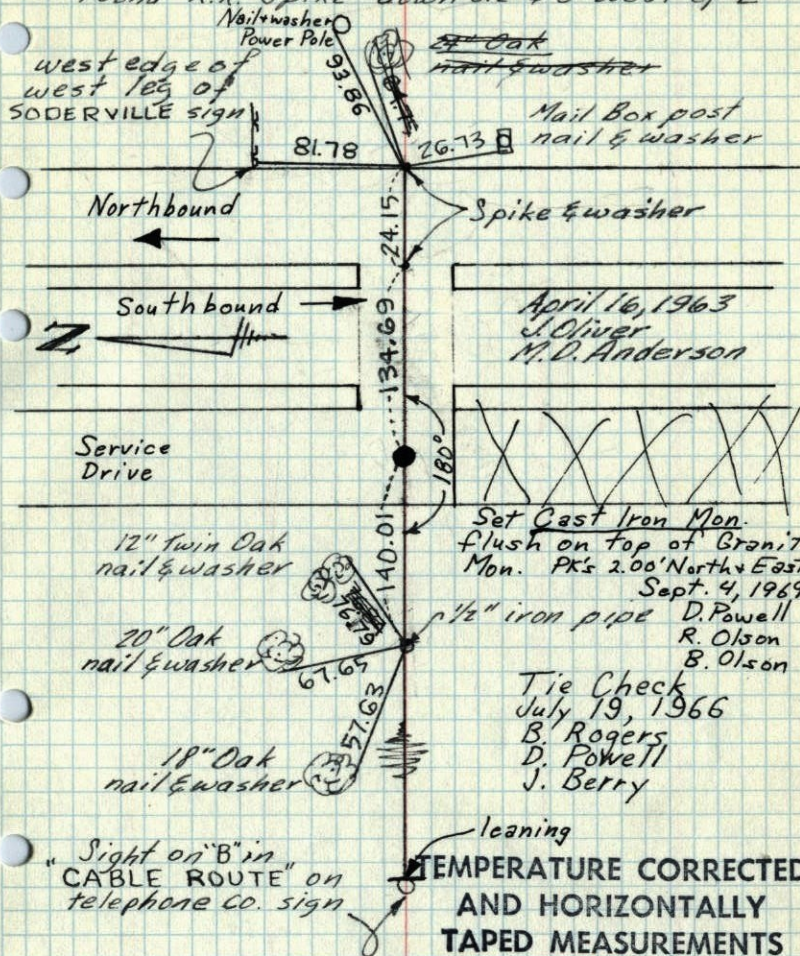 Nail & washer
Power Pole
93.86
24" Oak
nail & washer
west edge of
west leg of
SODERVILLE sign
81.78
26.73
Mail Box post
nail & washer
Northbound
24.15
Spike & washer
Southbound
134.69
April 16, 1963
J. Oliver
M.D. Anderson
Service
Drive
180°
140.01
Set Cast Iron Mon.
flush on top of Granit
Mon. PK's 2.00' North & East
Sept. 4, 1969
D. Powell
R. Olson
B. Olson
12" Twin Oak
nail & washer
76.79
1/2" iron pipe
20" Oak
nail & washer
67.65
57.63
18" Oak
nail & washer
Tie Check
July 19, 1966
B. Rogers
D. Powell
J. Berry
leaning
Sight on "B" in
"CABLE ROUTE" on
telephone co. sign
TEMPERATURE CORRECTED
AND HORIZONTALLY
TAPED MEASUREMENTS